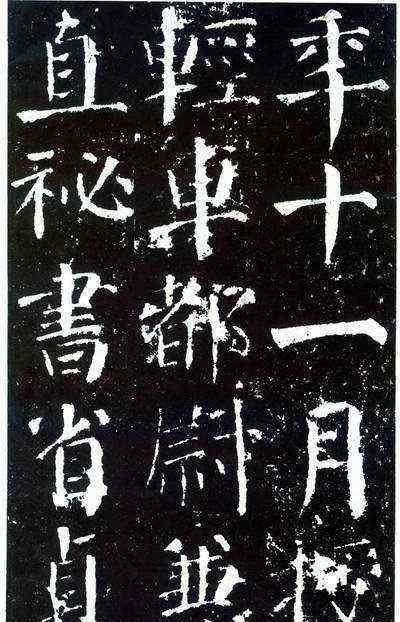 年十一月授
輕車都尉兼
直秘書省貞